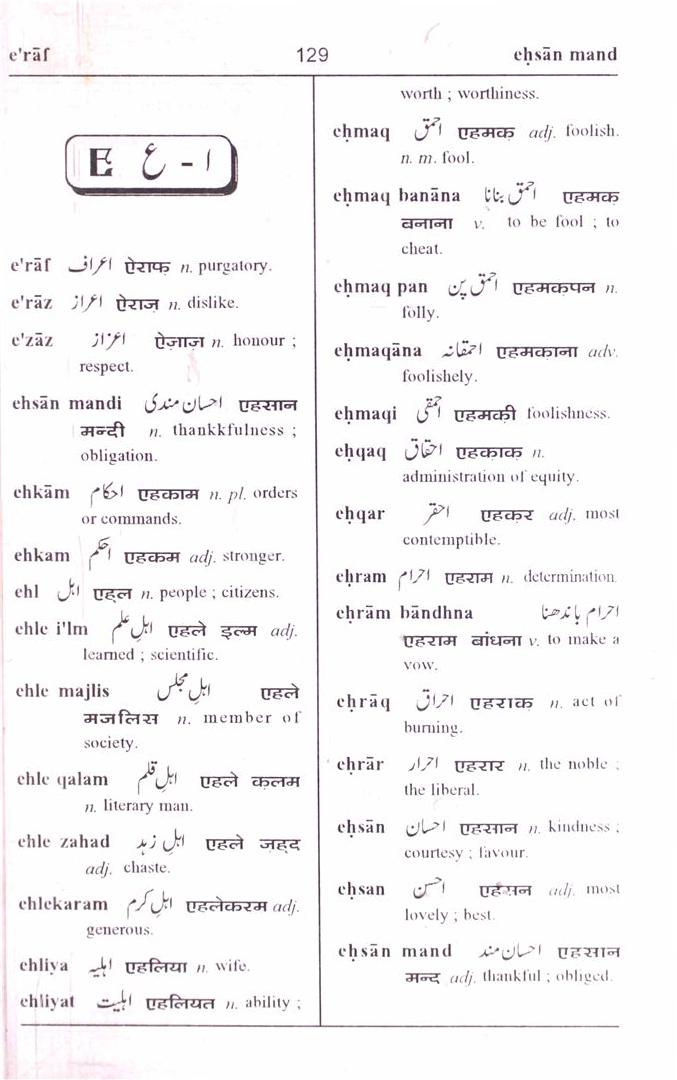 e'rāf 129 eḥsān mand
E ا - ع
e'rāf اعراف ऐराफ़ n. purgatory.
e'rāz اعراز ऐराज n. dislike.
e'zāz اعزاز ऐज़ाज़ n. honour ;
respect.
ehsān mandi احسان مندی एहसान
मन्दी n. thankkfulness ;
obligation.
ehkām احکام एहकाम n. pl. orders
or commands.
ehkam احکم एहकम adj. stronger.
ehl اہل एहल n. people ; citizens.
ehle i'lm اہلِ علم एहले इल्म adj.
learned ; scientific.
ehle majlis اہلِ مجلس एहले
मजलिस n. member of
society.
ehle qalam اہلِ قلم एहले क़लम
n. literary man.
ehle zahad اہلِ زہد एहले ज़हद
adj. chaste.
ehlekaram اہلِ کرم एहलेकरम adj.
generous.
ehliya اہلیہ एहलिया n. wife.
ehliyat اہلیت एहलियत n. ability ;
worth ; worthiness.
eḥmaq احمق एहमक़ adj. foolish.
n. m. fool.
eḥmaq banāna احمق بنانا एहमक़
बनाना v. to be fool ; to
cheat.
eḥmaq pan احمق پن एहमक़पन n.
folly.
eḥmaqāna احمقانہ एहमक़ाना adv.
foolishely.
eḥmaqi احمقی एहमक़ी foolishness.
eḥqaq احقاق एहकाक़ n.
administration of equity.
eḥqar احقر एहकर adj. most
contemptible.
eḥram احرام एहराम n. determination.
eḥrām bāndhna احرام باندھنا
एहराम बांधना v. to make a
vow.
eḥrāq احراق एहराक़ n. act of
burning.
eḥrār احرار एहरार n. the noble ;
the liberal.
eḥsān احسان एहसान n. kindness ;
courtesy ; favour.
eḥsan احسن एहसन adj. most
lovely ; best.
eḥsān mand احسان مند एहसान
मन्द adj. thankful ; obliged.